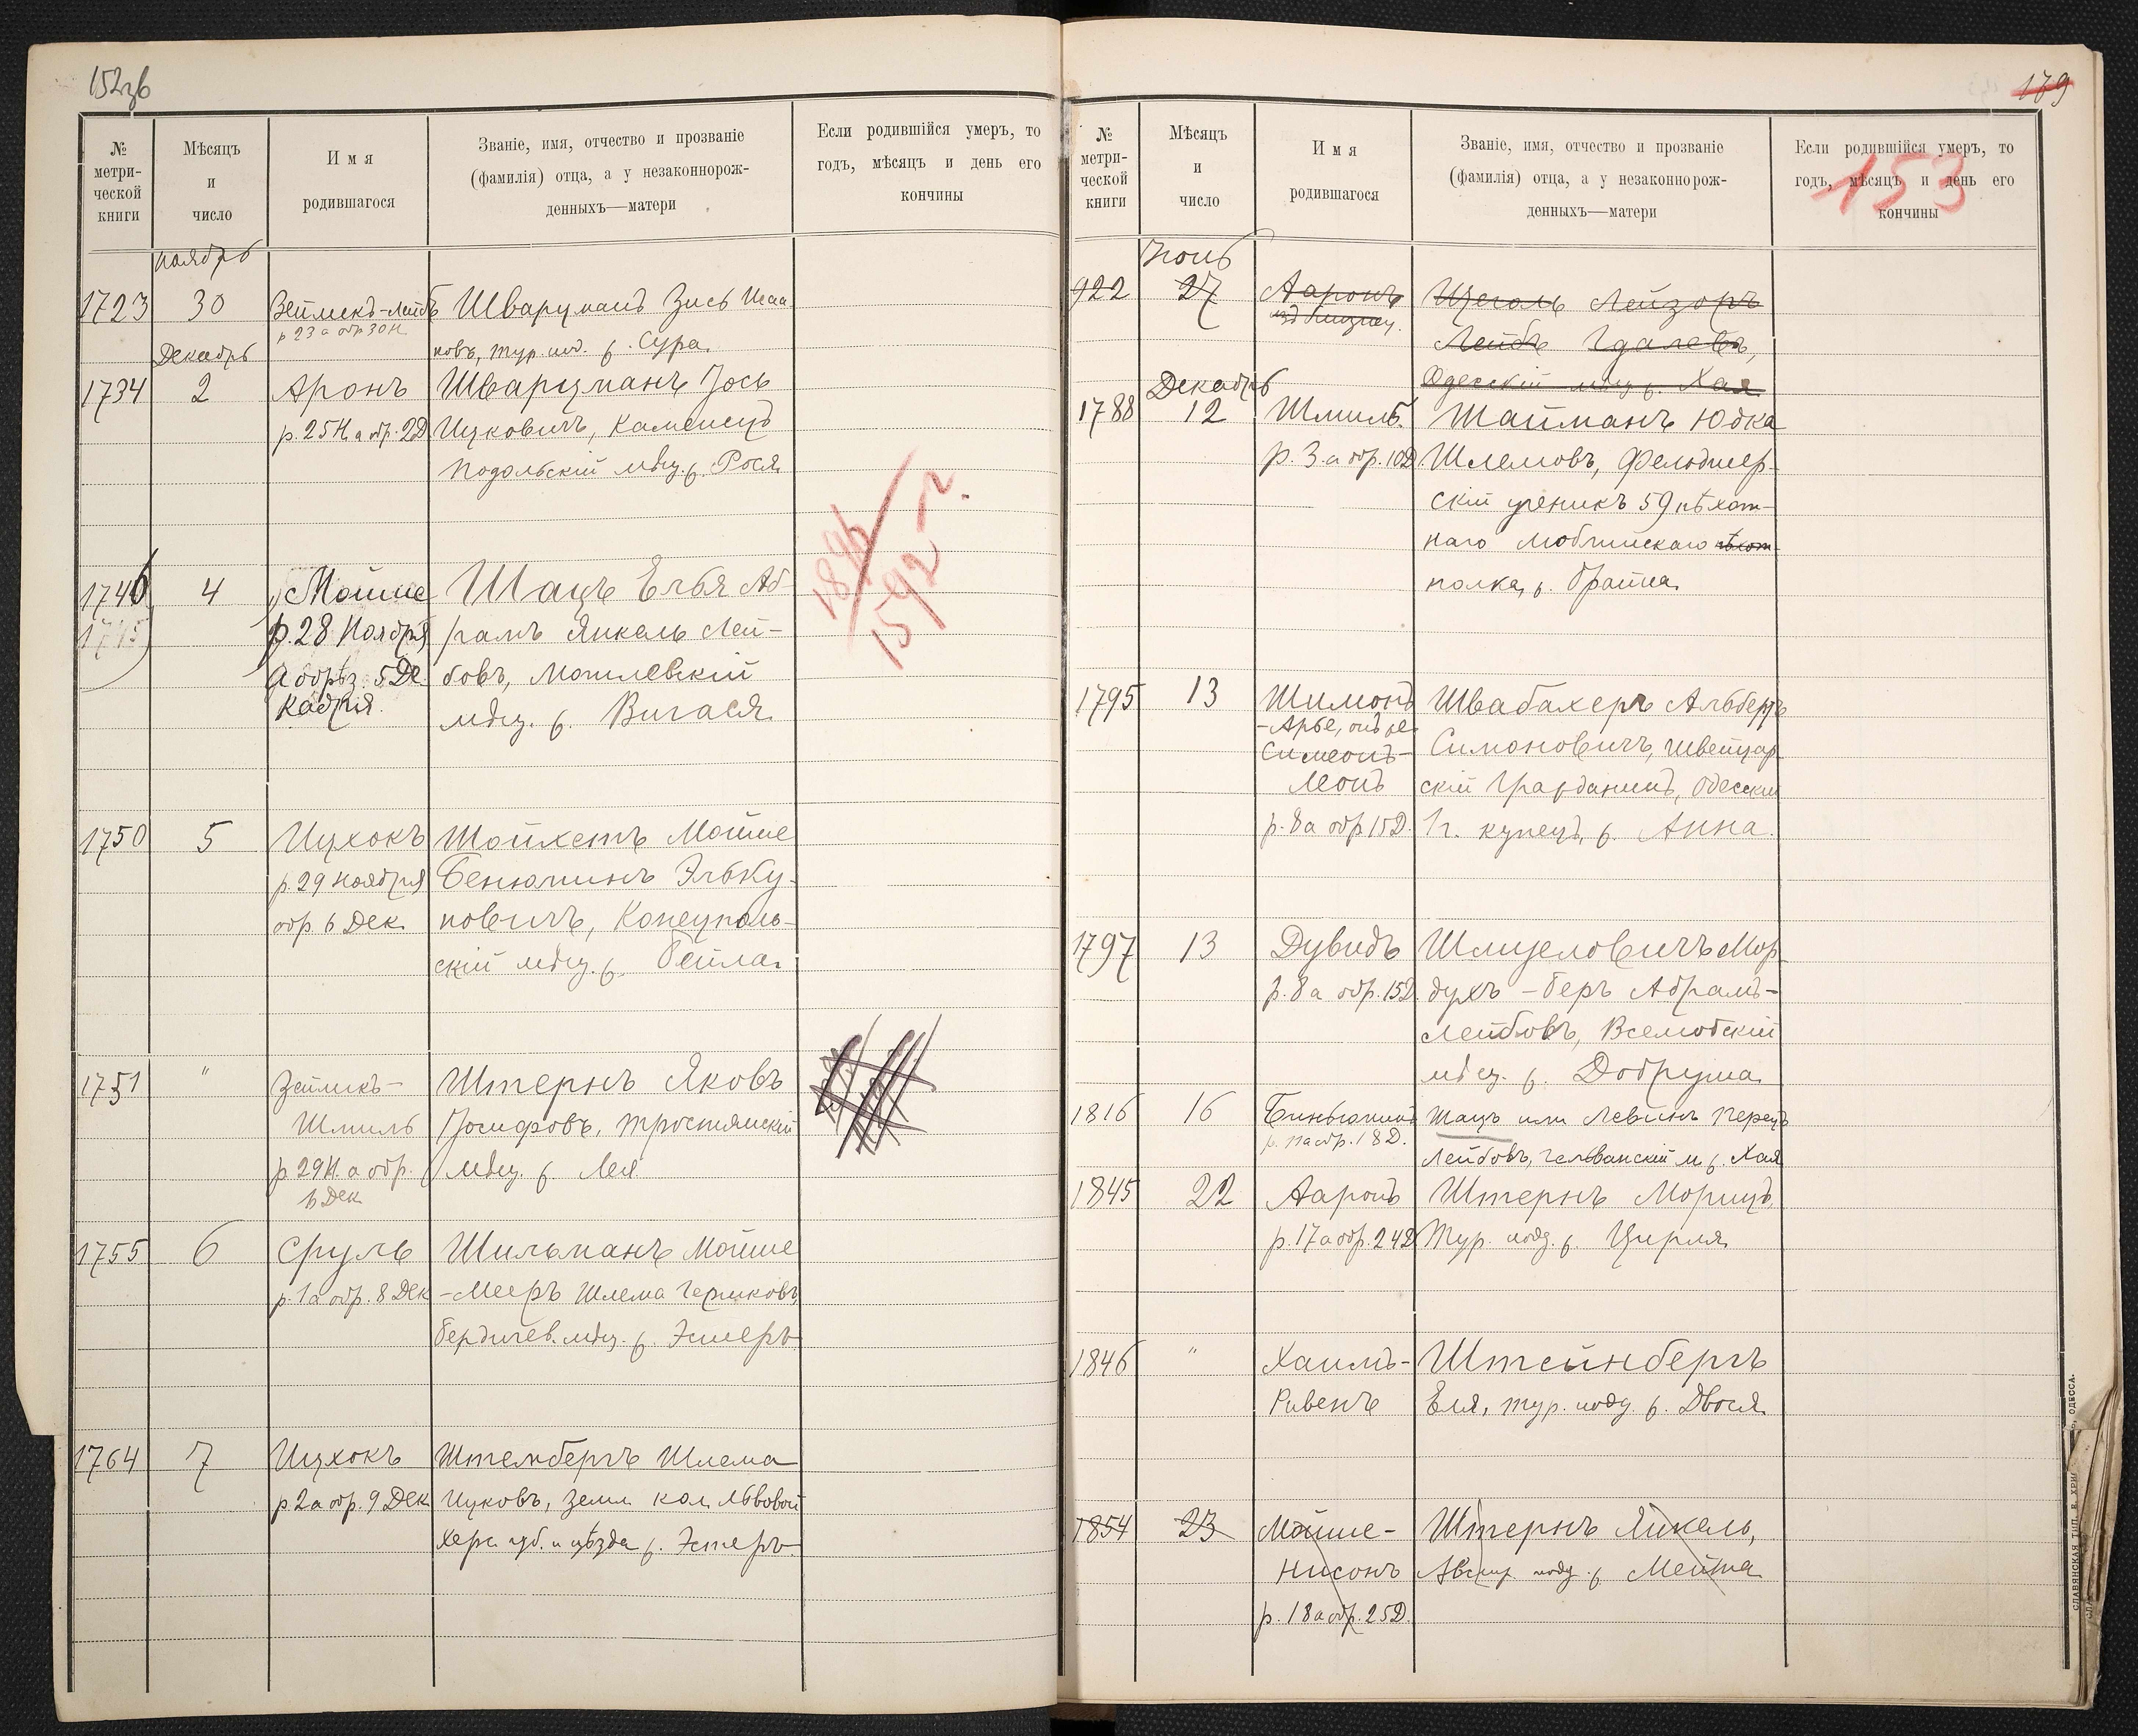 152зв
№ метрической книги
Мѣсяцъ и число
Имя родившагося
Званіе, имя, отчество и прозваніе
(фамилія) отца, а у незаконнорож-
денныхъ—матери
Если родившійся умеръ, то
годъ, мѣсяцъ и день его
кончины
ноябрь
1723 30 Зейликъ-Лейбъ Шварцманъ Зись Исаа
р 23 а обр 30 Н
ковъ, тур. под. ж. Сура
Декабрь
1734 2 Аронъ Шварцманъ Іось
р. 25 Н. а обр. 2 Д Ицковичъ, Каменецъ
Подольскій мѣщ. ж. Рося
1746 4 Мойше Шацъ Елья Аб-
1745 р. 28 Ноября рамъ Янкель Лей-
а обрѣз. 5 Де- бовъ, Могилевскій
кабря. мѣщ. ж.
1896
1592 г.
1750 5 Ицхокъ Шойхетъ Мойше
р. 29 ноября Бенюминъ Элькy-
обр. 6 Дек. новичъ, Конецполь-
скій мѣщ. ж. Бейла
1751 " Зейликъ- Штернъ Яковъ
Шмиль Іосифовъ, Тростянскій
р 29 Н. а обр. мѣщ. ж Лея
6 Дек
1755 6 Сруль Шильманъ Мойше
р. 1 а обр. 8 Дек -Мееръ Шлема
Бердичев. мѣщ. ж. Эстеръ
1764 7 Ицхокъ Штембергъ Шлема
р 2 а обр. 9 Дек Ицковъ, земл кол Львовой
Херс. губ. и уѣзда ж. Эстеръ
179
153
№ метрической книги
Мѣсяцъ и число
Имя родившагося
Званіе, имя, отчество и прозваніе
(фамилія) отца, а у незаконнорож-
денныхъ—матери
Если родившійся умеръ, то
годъ, мѣсяцъ и день его
кончины
922 27 Ааронъ Щеголь Лейзоръ
изъ близнец. Лейбъ Гдалевъ,
Одесскій мѣщ ж. Хая
Декабрь
1788 12 Шмиль. Шайманъ Юдка
р. 3 а обр. 10 Д. Шлемовъ, Фельдшер-
скій ученикъ 59 пѣхот-
наго Люблинскаго пѣхот
полка, ж.
1795 13 Шимонъ Швабахеръ Альбертъ
-Арье, онъ же Симоновичъ, Швейцар-
Симеонъ- скій гражданинъ, Одесскій
Леонъ
р. 8 а обр 15 Д. 1 г. купецъ, ж. Анна.
1797 13 Дувидъ Шмуеловичъ Мор-
р. 8 а обр. 15 Д. духъ-Беръ Абрамъ-
Лейбовъ,
мѣщ. ж. Добруша
1816 16 Биньюминъ Шацъ или Левинъ Перецъ
р. 11 а обр. 18 Д.
Лейбовъ, м ж. Хая
1845 22 Ааронъ Штернъ Морицъ,
р. 17 а обр. 24 Д Тур. подд. ж. Цирля
1846 " Хаимъ- Штейнбергъ
Ривенъ Еля, тур. подд. ж. Двося
1854 23 Мойше- Штернъ Янкель,
Нисонъ Австр. подд. ж Мейта
р. 18 а обр. 25 Д.